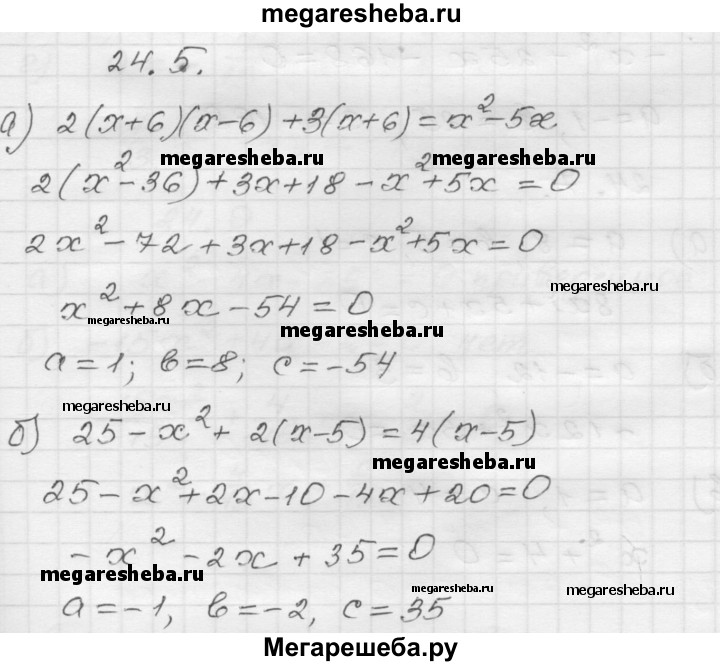 megaresheba.ru
24.5.
а) 2(x+6)(x-6)+3(x+6)=x²-5x
megaresheba.ru megaresheba.ru
2(x²-36)+3x+18-x²+5x=0
2x²-72+3x+18-x²+5x=0
megaresheba.ru
x²+8x-54=0
megaresheba.ru megaresheba.ru
a=1; b=8; c=-54
megaresheba.ru
б) 25-x²+2(x-5)=4(x-5)
megaresheba.ru
25-x²+2x-10-4x+20=0
-x²-2x+35=0
megaresheba.ru megaresheba.ru megaresheba.ru
a=-1, b=-2, c=35
Мегарешеба.ру